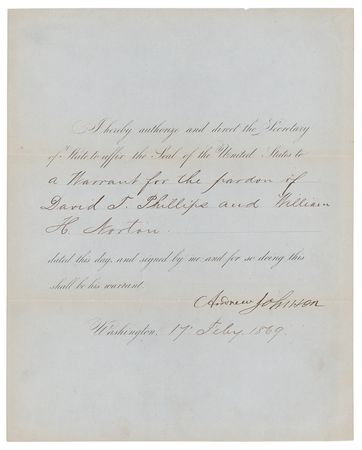 I hereby authorize and direct the Secretary
of State to affix the Seal of the United States to
a Warrant for the pardon of
David T. Phillips and William
H. Norton.
dated this day, and signed by me and for so doing this
shall be his warrant.
Andrew Johnson
Washington, 17 Feby. 1869.